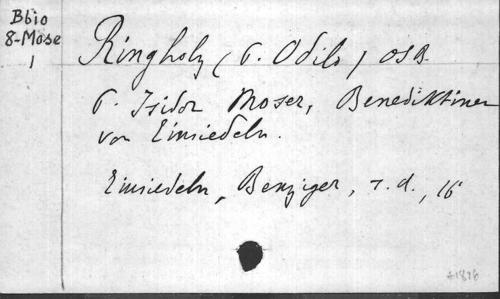 Bbio
8-Mose
1
Ringholz (P. Odilo) OSB.
P. Isidor Moser, Benediktiner
von Einsiedeln.
Einsiedeln, Benziger, s.d., 16°